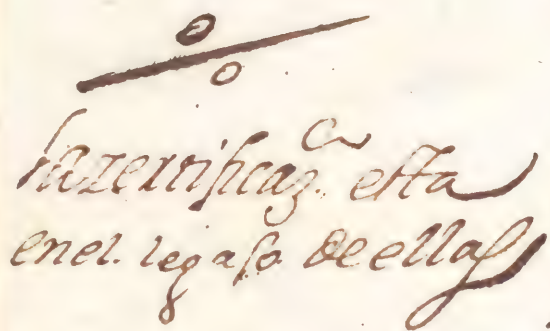 la zertificaz.on esta
en el legajo de ellas